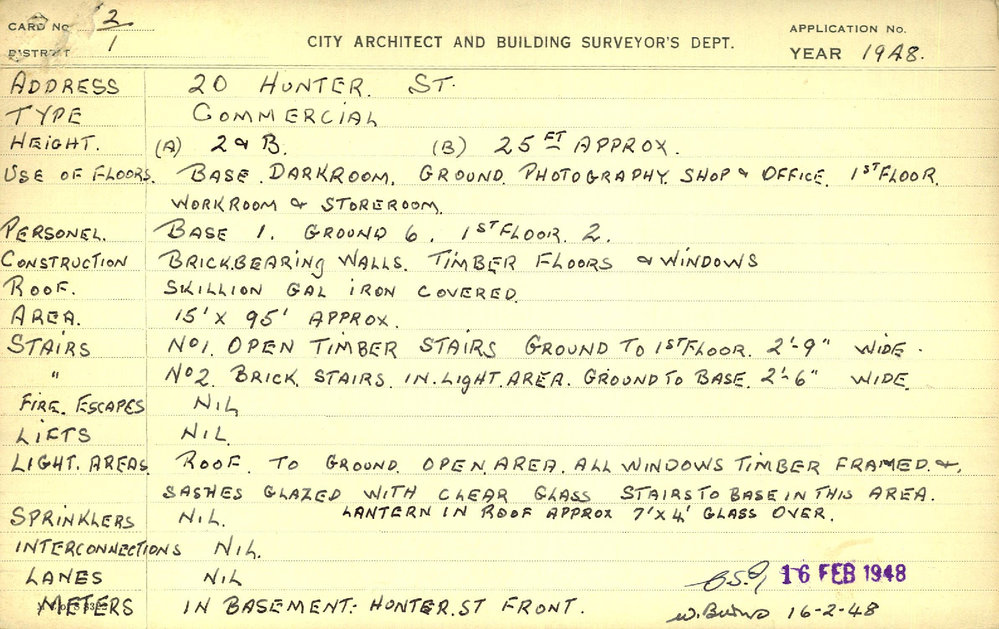 CARD No 2 APPLICATION No.
DISTRICT 1 CITY ARCHITECT AND BUILDING SURVEYOR'S DEPT. YEAR 1948.
ADDRESS 20 HUNTER. ST.
TYPE COMMERCIAL
HEIGHT. (A) 2 & B. (B) 25 FT APPROX.
USE OF FLOORS. BASE. DARKROOM. GROUND. PHOTOGRAPHY. SHOP & OFFICE. 1ST FLOOR.
WORKROOM & STOREROOM.
PERSONEL. BASE 1. GROUND 6. 1ST FLOOR. 2.
CONSTRUCTION BRICK.BEARING WALLS. TIMBER FLOORS & WINDOWS
ROOF. SKILLION GAL IRON COVERED.
AREA. 15' X 95' APPROX.
STAIRS No1. OPEN TIMBER STAIRS GROUND TO 1ST FLOOR. 2'-9" WIDE.
" No2. BRICK. STAIRS. IN. LIGHT. AREA. GROUND TO BASE. 2'-6" WIDE.
FIRE. ESCAPES NIL
LIFTS NIL.
LIGHT. AREAS. ROOF. TO GROUND. OPEN. AREA. ALL WINDOWS TIMBER FRAMED. &.
SASHES GLAZED WITH CLEAR GLASS STAIRS TO BASE IN THIS AREA.
SPRINKLERS NIL. LANTERN IN ROOF APPROX 7' X 4' GLASS OVER.
INTERCONNECTIONS NIL.
LANES NIL 16 FEB 1948
METERS IN BASEMENT:- HUNTER. ST FRONT. 16-2-48